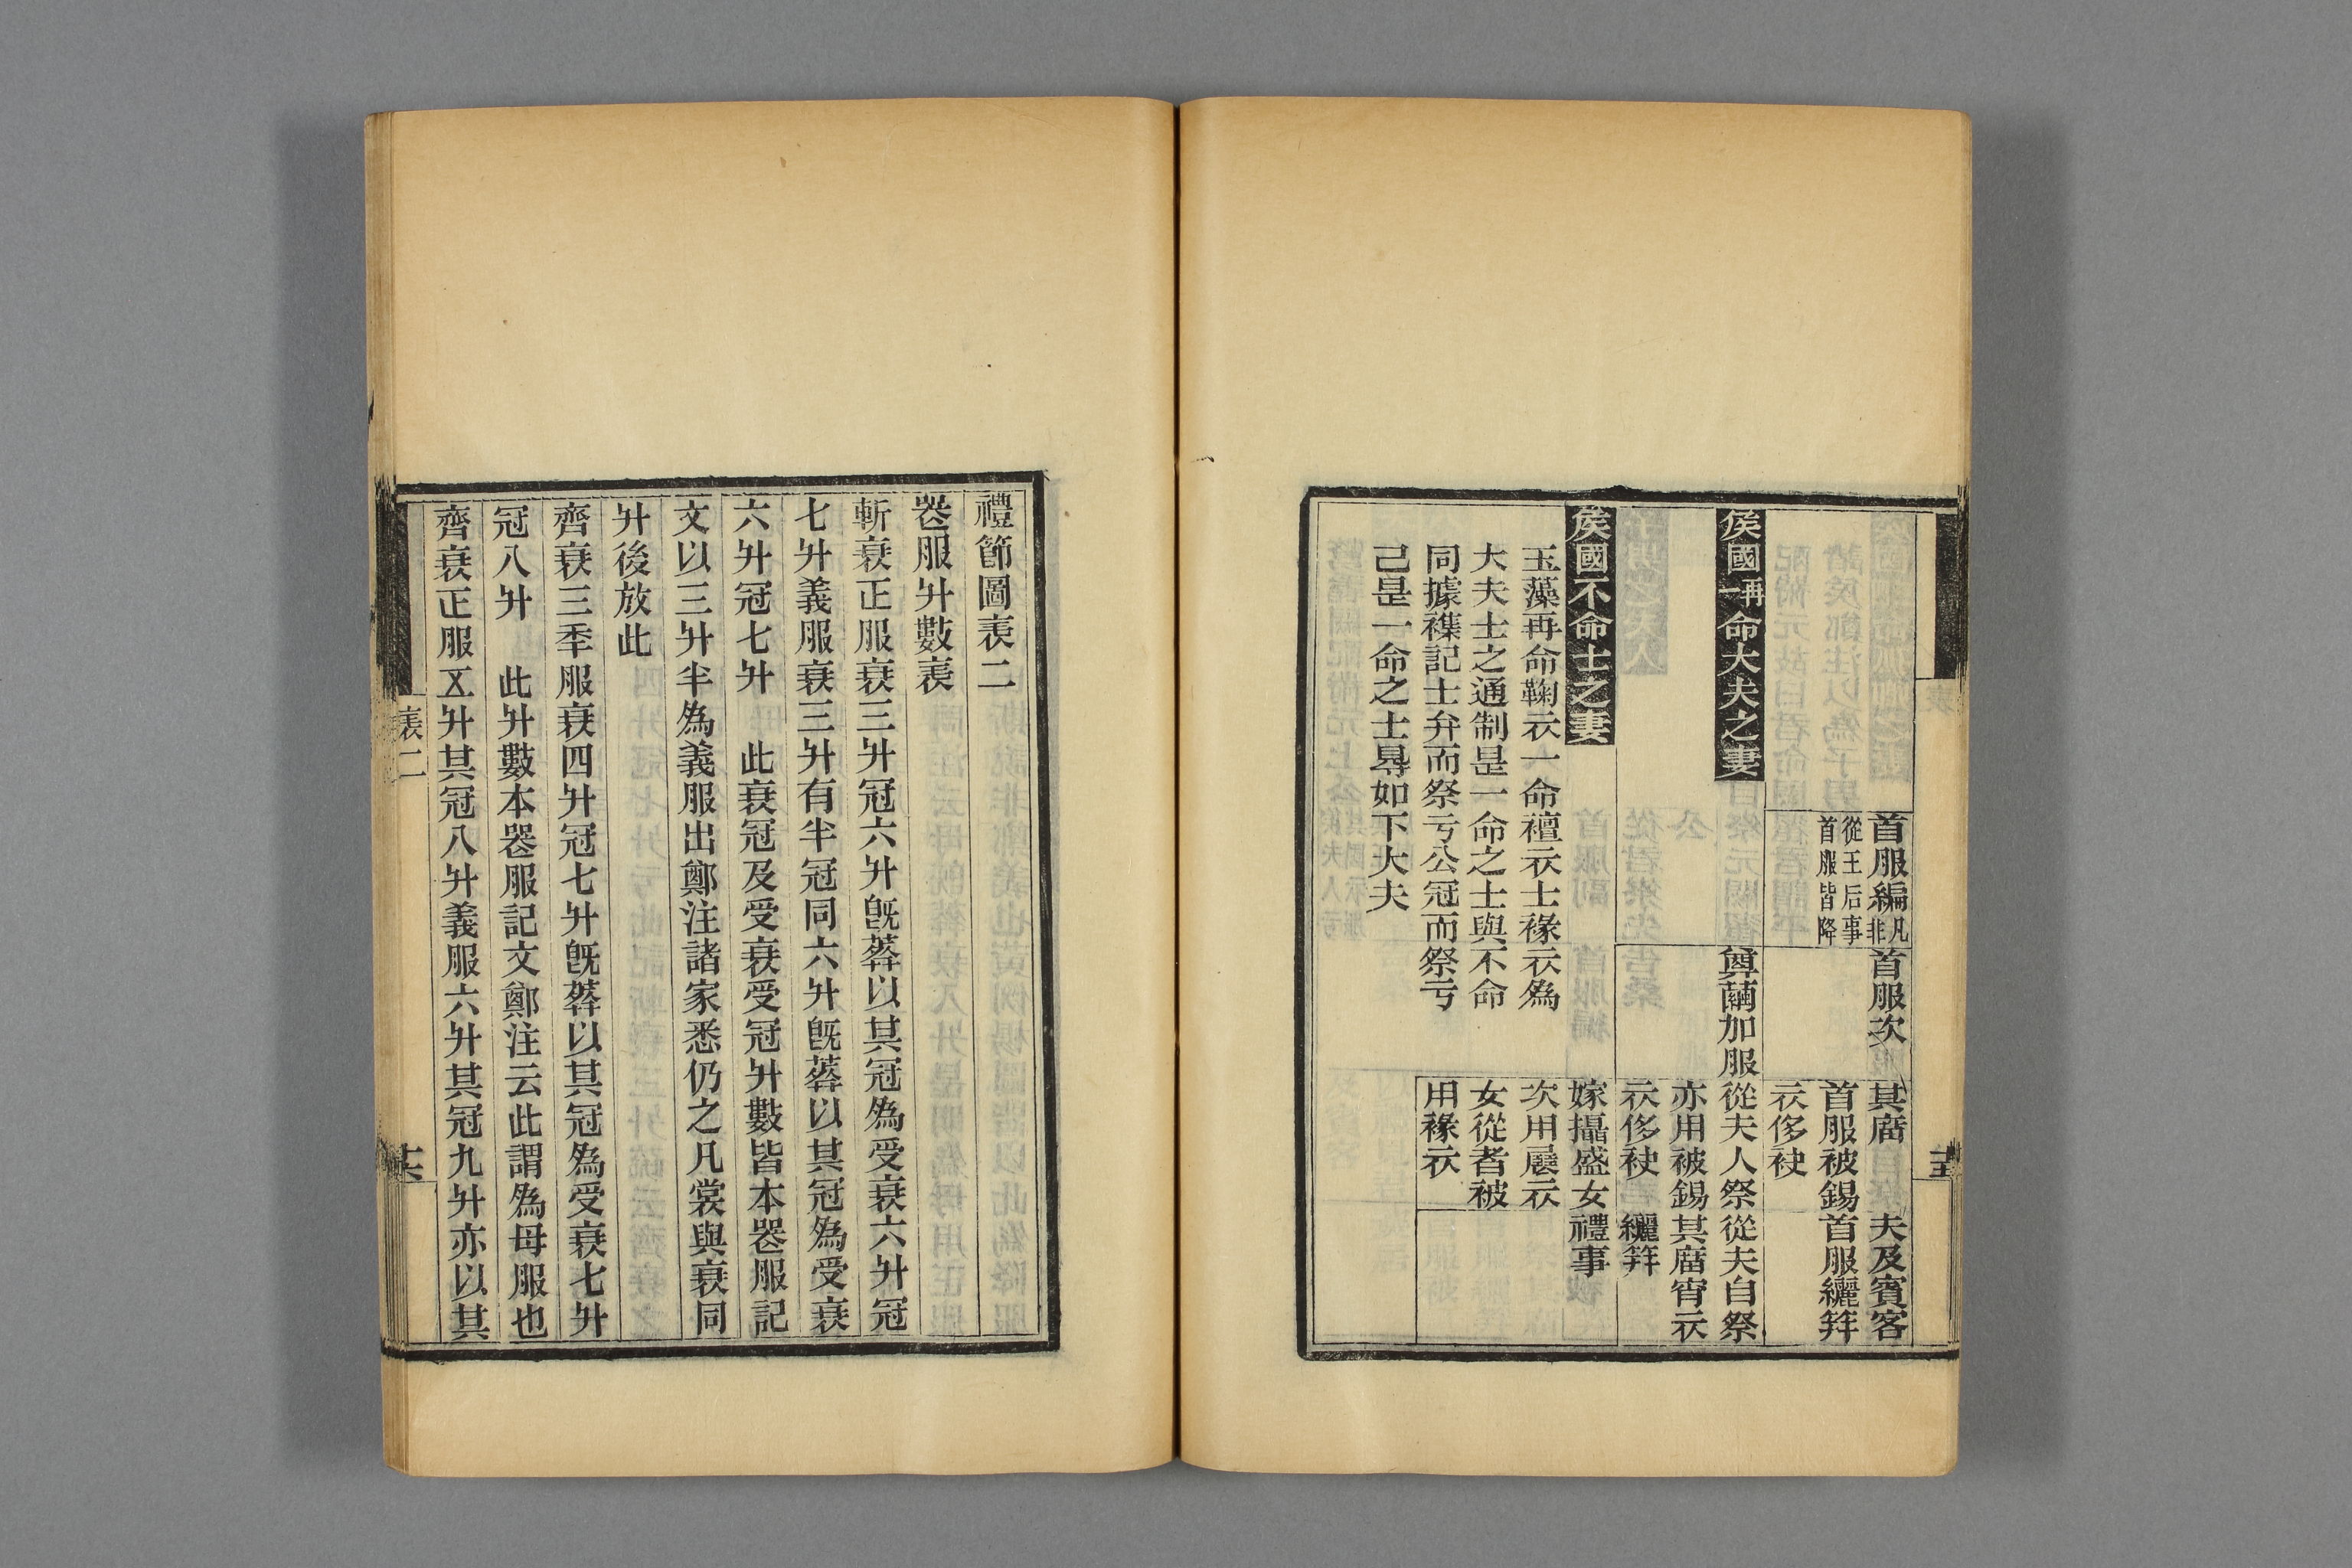 首服編凡非從王后事首服皆降
首服次
其䧹首服被錫衣侈袂
夫及賓客首服纚笄
矦國再一命大夫之妻
尊繭加服
從夫人祭亦用被錫衣侈袂
從夫自祭其䧹宵衣纚笄
矦國不命士之妻
嫁攝盛女次用展衣女從者被用褖衣
禮事
玉藻再命鞠衣一命襢衣士褖衣為
大夫士之通制是一命之士與不命
同據襍記士弁而祭亏公冠而祭亏
己是一命之士㝵如下大夫
禮節圖表二
喪服升數表
斬衰正服衰三升冠六升旣葬以其冠為受衰六升冠
七升義服衰三升有半冠同六升旣葬以其冠為受衰
六升冠七升　此衰冠及受衰受冠升數皆本喪服記
文以三升半為義服出鄭注諸家悉仍之凡裳與衰同
升後放此
齊衰三秊服衰四升冠七升旣葬以其冠為受衰七升
冠八升　此升數本喪服記文鄭注云此謂為母服也
齊衰正服五升其冠八升義服六升其冠九升亦以其
表二